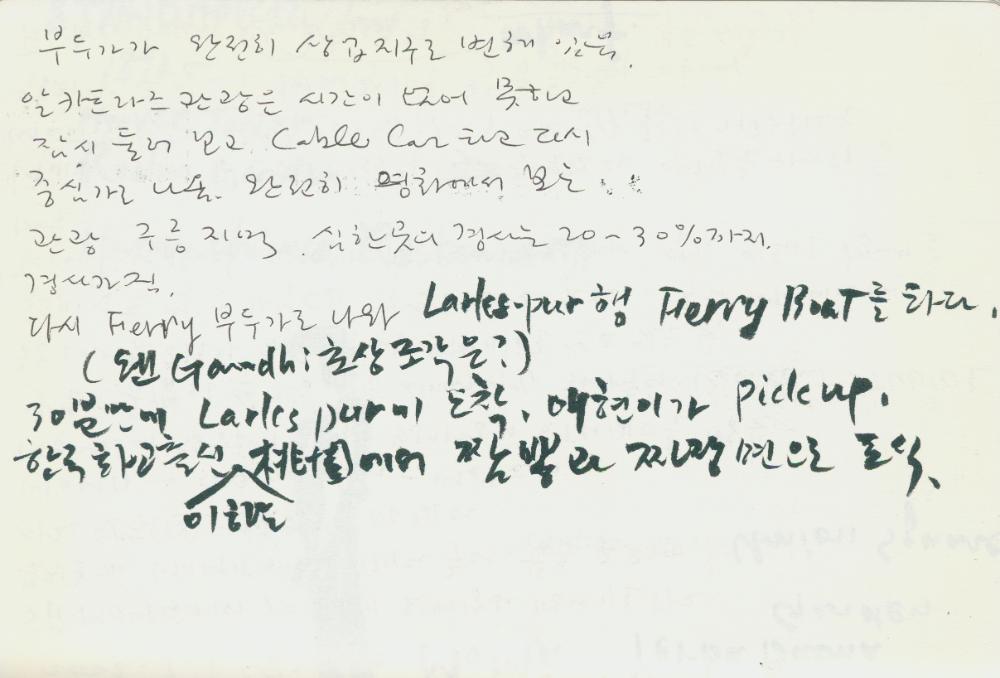 부두가가 완전히 상업지구로 변해 있음.
알카트라즈 관광은 시간이 없어 못하고
잠시 둘러 보고 Cable Car 타고 다시
중심가로 나옴. 완전히 영화에서 보는
관광 구릉 지역. 심한곳의 경사는 20~30%까지.
경사가 짐.
다시 Ferry 부두가로 나와 Larkspur행 Ferry Boat를 타다.
(웬 Gandhi 초상 조각은?)
30분만에 Larkspur에 도착, 애현이가 pick up.
한국 화교출신 에서 짬뽕과 짜장면으로 포식.
이 하는